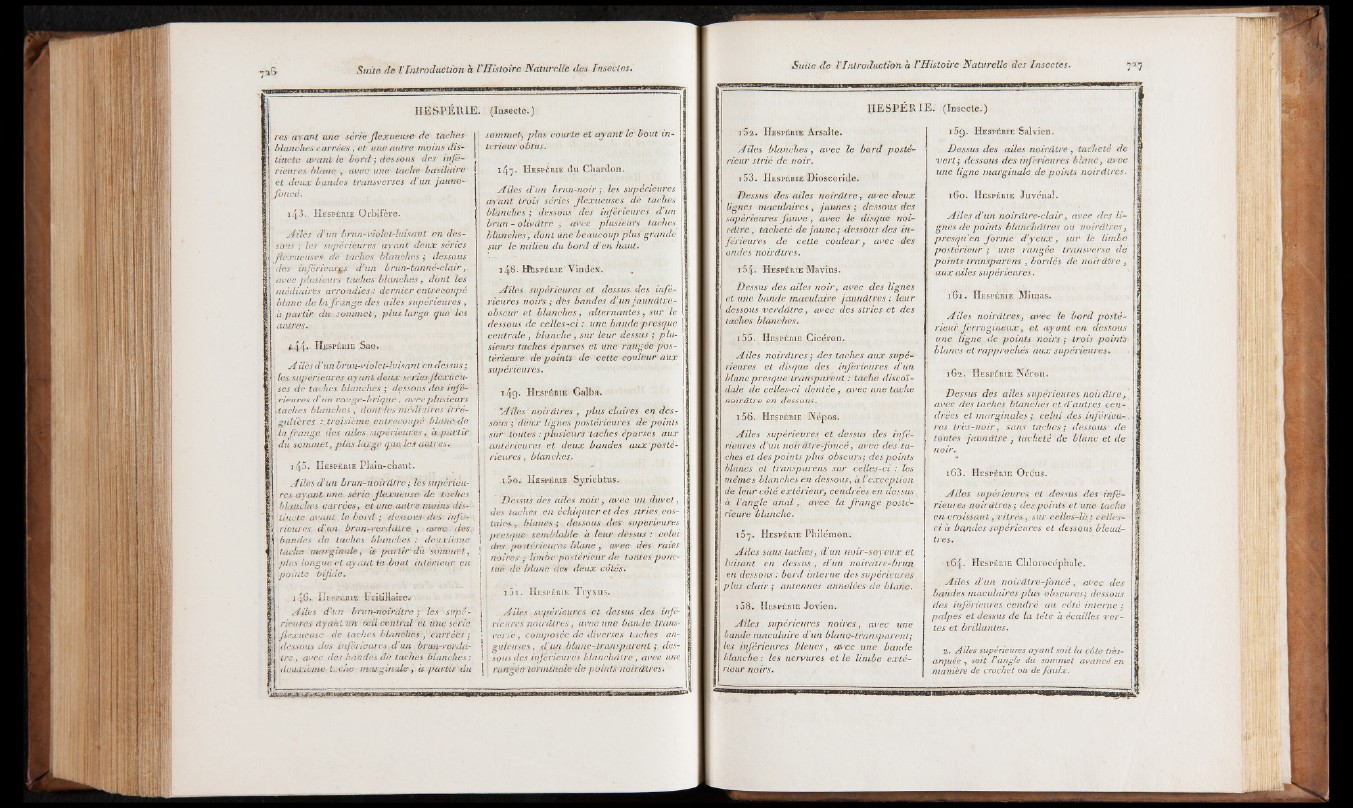 726
Suite de l'Introduction à l'Histoire Naturelle des Insectes.
HESPÉRIE. (Insecte.)
res ayant une série flexueuse de taches
blanches carrées, et une autre moins dis-
tincte avant le bord; dessous des infé-
rieures blanc, avec une tache basilaire
et deux bandes transverses d'un jaune-
foncé.
143. Hespérie Orbifère.
Ailes d'un brun-violet-luisant en des-
sous; les supérieures ayant deux séries
flexueuses de taches blanches; dessous
des inférieures d'un brun-tanné-clair,
avec plusieurs taches blanches, dont les
médiaires arrondies: dernier entrecoupé
blanc de la frange des ailes supérieures,
à partir du sommet, plus large que les
autres.
144. Hespérie Sao.
Ailes d'un brun-violet-luisant en dessus;
les supérieures ayant deux séries flexueu-
ses de taches blanches; dessous des infé-
rieures d'un rouge-brique, avec plusieurs
taches blanches, dont les médiaires irré-
gulières: troisième entrecoupé blanc de
la frange des ailes supérieures, à partir
du sommet, plus large que les autres.
145. Hespérie Plain-chant.
Ailes d'un brun-noirâtre; les supérieu-
res ayant une série flexueuse de taches
blanches carrées, et une autre moins dis-
tincte avant le bord; dessous des infé-
rieures d'un brun-verdâtre, avec des
bandes de taches blanches: deuxième
tache marginale, à partir du sommet,
plus longue et ayant le bout intérieur en
pointe bifide.
146. Hespérie Fritillaire.
Ailes d'un brun-noirâtre; les supé-
rieures ayant un œil central et une série
flexueuse de taches blanches, carrées;
dessous des inférieures d'un brun-verdâ-
tre, avec des bandes de taches blanches:
deuxième tache marginale, à partir du
sommet, plus courte et ayant le bout in-
térieur obtus.
147. Hespérie du Chardon.
Ailes d'un brun-noir; les supérieures
ayant trois séries flexueuses de taches
blanches; dessous des inférieures d'un
brun-olivâtre, avec plusieurs taches
blanches, dont une beaucoup plus grande
sur le milieu du bord d'en haut.
148. Hespérie Vindex.
Ailes supérieures et dessus des infé-
rieures noirs; des bandes d'un jaunâtre-
obscur et blanches, alternantes, sur le
dessous de celles-ci: une bande presque
centrale, blanche, sur leur dessus; plu-
sieurs taches éparses et une rangée pos-
térieure de points de cette couleur aux
supérieures.
149. Hespérie Galba.
Ailes noirâtres, plus claires en des-
sous; deux lignes postérieures de points
sur toutes: plusieurs taches éparses aux
antérieures et deux bandes aux posté-
rieures, blanches.
150. Hespérie Syrichtus.
Dessus des ailes noir, avec un duvet,
des taches en échiquier et des stries cos-
tales, blancs; dessous des supérieures
presque semblable à leur dessus: celui
des postérieures blanc, avec des raies
noires; limbe postérieur de toutes ponc-
tué de blanc des deux côtés.
151. Hespérie Tryxus.
Ailes supérieures et dessus des infé-
rieures noirâtres, avec une bande trans-
verse, composée de diverses taches an-
guleuses, d'un blanc-transparent; des-
sous des inférieures blanchâtre, avec une
rangée terminale de points noirâtres.
Suite de l'Introduction à l'Histoire Naturelle des Insectes.
727
HESPÉRIE. (Insecte.)
152. Hespérie Arsalte.
Ailes blanches, avec le bord posté-
rieur strié de noir.
153. Hespérie Dioscoride.
Dessus des ailes noirâtre, avec deux
lignes maculaires, jaunes; dessous des
supérieures fauve, avec le disque noi-
râtre, tacheté de jaune; dessous des in-
férieures de cette couleur, avec des
ondes noirâtres.
154. Hespérie Mavius.
Dessus des ailes noir, avec des lignes
et une bande maculaire jaunâtres: leur
dessous verdâtre, avec des stries et des
taches blanches.
155. Hespérie Cicéron.
Ailes noirâtres; des taches aux supé-
rieures et disque des inférieures d'un
blanc presque transparent: tache discoï-
dale de celles-ci dentée, avec une tache
noirâtre en dessous.
156. Hespérie Népos.
Ailes supérieures et dessus des infé-
rieures d'un noirâtre-foncé, avec des ta-
ches et des points plus obscurs; des points
blancs et transparens sur celles-ci: les
mêmes blanches en dessous, à l'exception
de leur côté extérieur, cendrées en dessus
à l'angle anal, avec la frange posté-
rieure blanche.
157. Hespérie Philémon.
Ailes sans taches, d'un noir-soyeux et
luisant en dessus, d'un noirâtre-brun
en dessous: bord interne des supérieures
plus clair; antennes annelées de blanc.
158. Hespérie Jovien.
Ailes supérieures noires, avec une
bande maculaire d'un blanc-transparent;
les inférieures bleues, avec une bande
blanche: les nervures et le limbe exté-
rieur noirs.
159. Hespérie Salvien.
Dessus des ailes noirâtre, tacheté de
vert; dessous des inférieures blanc, avec
une ligne marginale de points noirâtres.
160. Hespérie Juvénal.
Ailes d'un noirâtre-clair, avec des li-
gnes de points blanchâtres ou noirâtres,
presqu'en forme d'yeux, sur le limbe
postérieur; une rangée transverse de
points transparens, bordés de noirâtre,
aux ailes supérieures.
161. Hespérie Mimas.
Ailes noirâtres, avec le bord posté-
rieur ferrugineux, et ayant en dessous
une ligne de points noirs; trois points
blancs et rapprochés aux supérieures.
162. Hespérie Néron.
Dessus des ailes supérieures noirâtre,
avec des taches blanches et d'autres cen-
drées et marginales; celui des inférieu-
res très-noir, sans taches; dessous de
toutes jaunâtre, tacheté de blanc et de
noir.
163. Hespérie Orcus.
Ailes supérieures et dessus des infé-
rieures noirâtres; des points et une tache
en croissant, vitrés, sur celles-là: celles-
ci à bandes supérieures et dessous bleuâ-
tres.
164. Hespérie Chlorocéphale.
Ailes d'un noirâtre-foncé, avec des
bandes maculaires plus obscures; dessous
des inférieures cendré au côté interne;
palpes et dessus de la tête à écailles ver-
tes et brillantes.
2. Ailes supérieures ayant soit la côte très-
arquée, soit l'angle du sommet avancé en
manière de crochet ou de faulx.